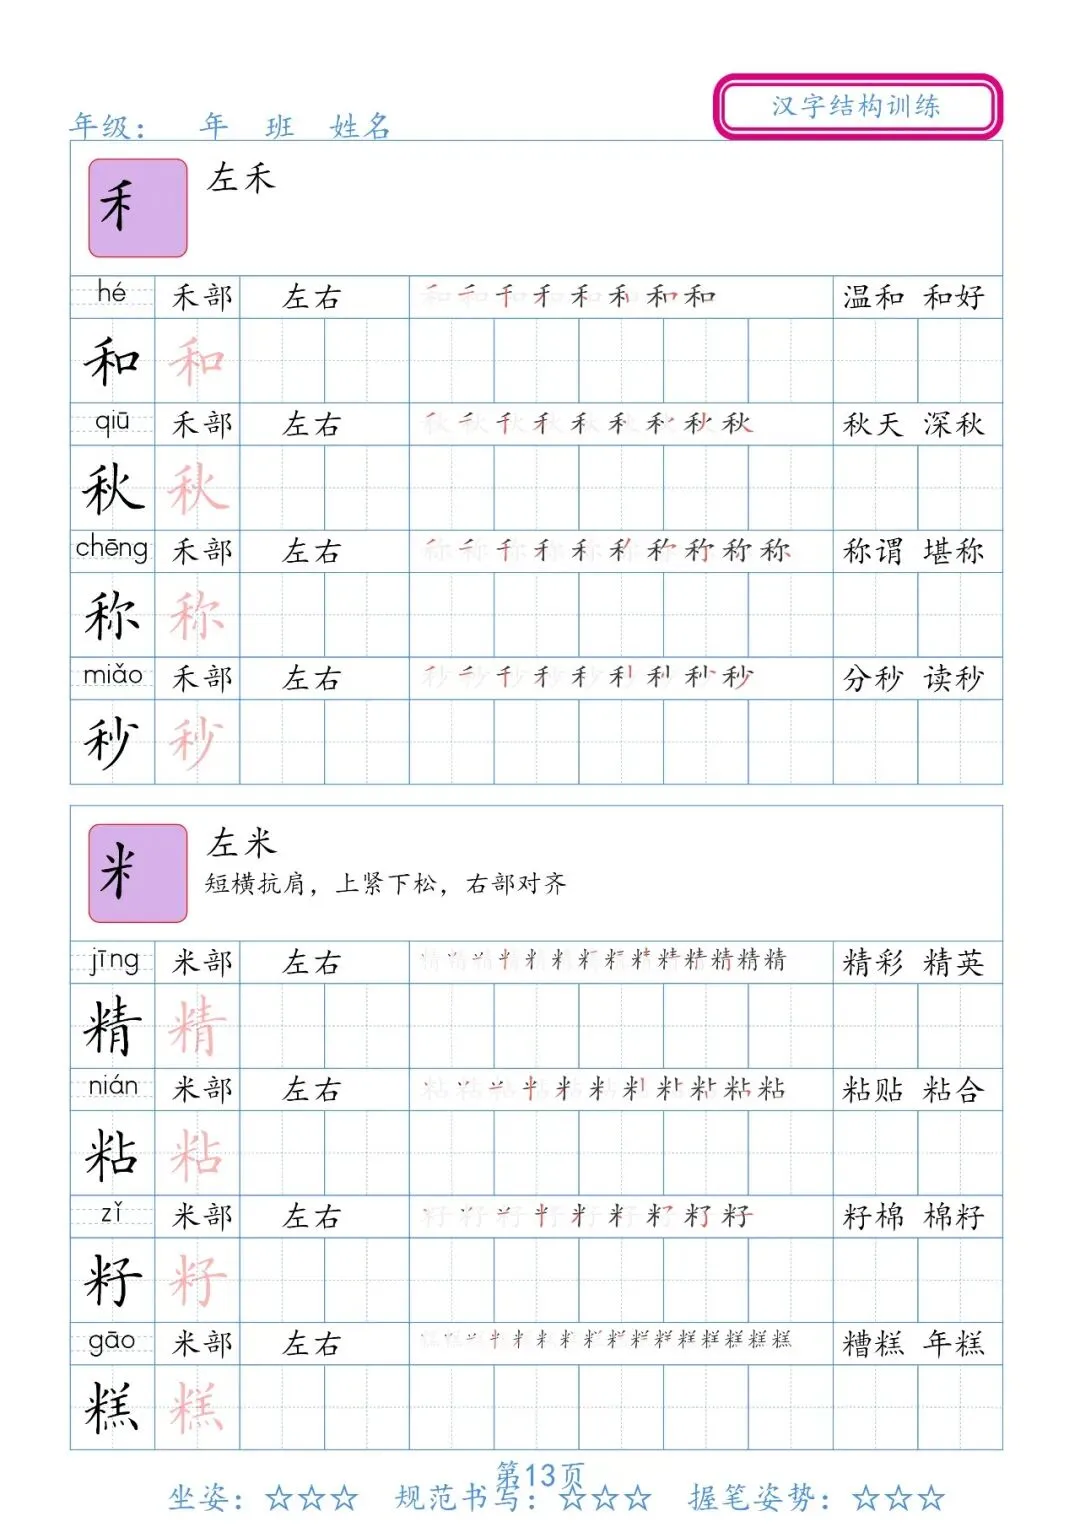 汉字结构训练
年级： 年 班 姓名
禾 左禾
hé 禾部 左右 和 温和 和好
和 和
qiū 禾部 左右 秋 秋天 深秋
秋 秋
chēng 禾部 左右 称 称谓 堪称
称 称
miǎo 禾部 左右 秒 分秒 读秒
秒 秒
米 左米
短横抗肩，上紧下松，右部对齐
jīng 米部 左右 精 精彩 精英
精 精
nián 米部 左右 粘 粘贴 粘合
粘 粘
zǐ 米部 左右 籽 籽棉 棉籽
籽 籽
gāo 米部 左右 糕 糟糕 年糕
糕 糕
第13页
坐姿：☆☆☆ 规范书写：☆☆☆ 握笔姿势：☆☆☆